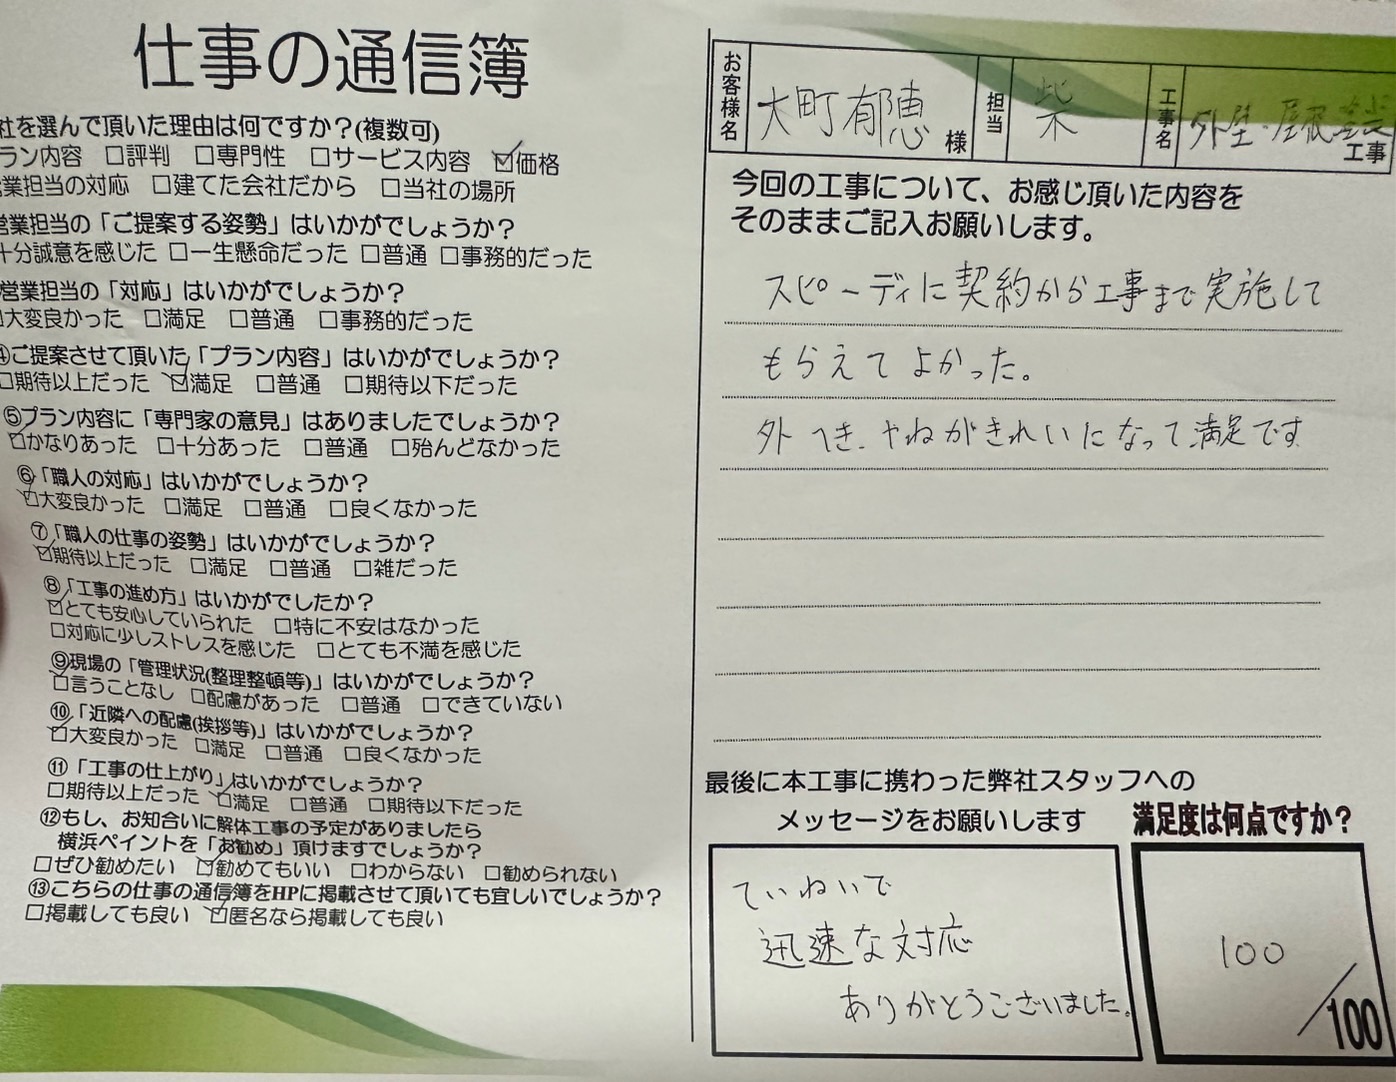 仕事の通信簿
社を選んで頂いた理由は何ですか?(複数可)
ラン内容 □評判 □専門性 □サービス内容 ☑価格
営業担当の対応 □建てた会社だから □当社の場所
営業担当の「ご提案する姿勢」はいかがでしょうか?
十分誠意を感じた □一生懸命だった □普通 □事務的だった
営業担当の「対応」はいかがでしょうか?
□大変良かった □満足 □普通 □事務的だった
④ご提案させて頂いた「プラン内容」はいかがでしょうか?
□期待以上だった ☑満足 □普通 □期待以下だった
⑤プラン内容に「専門家の意見」はありましたでしょうか?
☑かなりあった □十分あった □普通 □殆んどなかった
⑥「職人の対応」はいかがでしょうか?
☑大変良かった □満足 □普通 □良くなかった
⑦「職人の仕事の姿勢」はいかがでしょうか?
☑期待以上だった □満足 □普通 □雑だった
⑧「工事の進め方」はいかがでしたか?
☑とても安心していられた □特に不安はなかった
□対応に少しストレスを感じた □とても不満を感じた
⑨現場の「管理状況(整理整頓等)」はいかがでしょうか?
☑言うことなし □配慮があった □普通 □できていない
⑩「近隣への配慮(挨拶等)」はいかがでしょうか?
☑大変良かった □満足 □普通 □良くなかった
⑪「工事の仕上がり」はいかがでしょうか?
□期待以上だった ☑満足 □普通 □期待以下だった
⑫もし、お知合いに解体工事の予定がありましたら
横浜ペイントを「お勧め」頂けますでしょうか?
□ぜひ勧めたい ☑勧めてもいい □わからない □勧められない
⑬こちらの仕事の通信簿をHPに掲載させて頂いても宜しいでしょうか?
□掲載しても良い ☑匿名なら掲載しても良い
お客様名 大町 郁恵 様 担当 柴 工事名 外壁・屋根塗装 工事
今回の工事について、お感じ頂いた内容を
そのままご記入お願いします。
スピーディに契約から工事まで実施して
もらえてよかった。
外へき、やねがきれいになって満足です
最後に本工事に携わった弊社スタッフへの
メッセージをお願いします
ていねいで
迅速な対応
ありがとうございました。
満足度は何点ですか?
100
/100